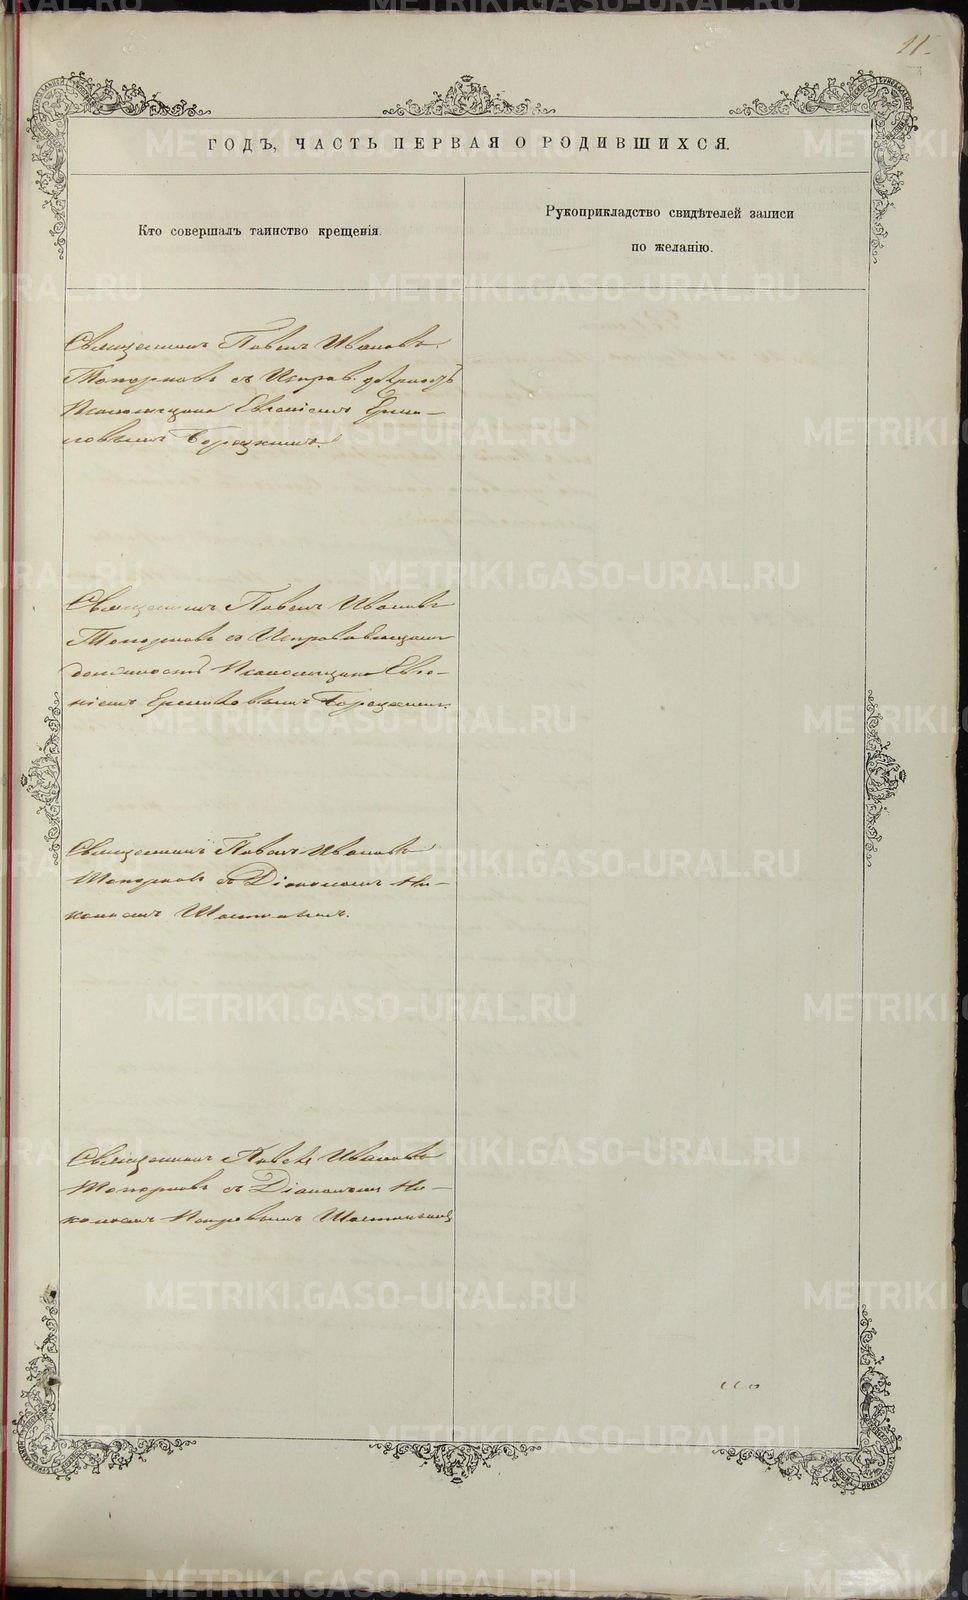 11.
ГОДЪ, ЧАСТЬ ПЕРВАЯ О РОДИВШИХСЯ.
Кто совершалъ таинство крещенія.
Рукоприкладство свидѣтелей записи
по желанію.
Священникъ Павелъ Ивановъ
Топорковъ съ Исправ. должность
Псаломщика Евгеніемъ Ерми-
ловымъ Борецкимъ.
Священникъ Павелъ Ивановъ
Топорковъ съ Исправляющимъ
должность Псаломщика Евге-
ніемъ Ермиловымъ Борецкимъ.
Священникъ Павелъ Ивановъ
Топорковъ съ Діакономъ Ни-
колаемъ
Священникъ Павелъ Ивановъ
Топорковъ съ Діакономъ Ни-
колаемъ Петровымъ
METRIKI.GASO-URAL.RU